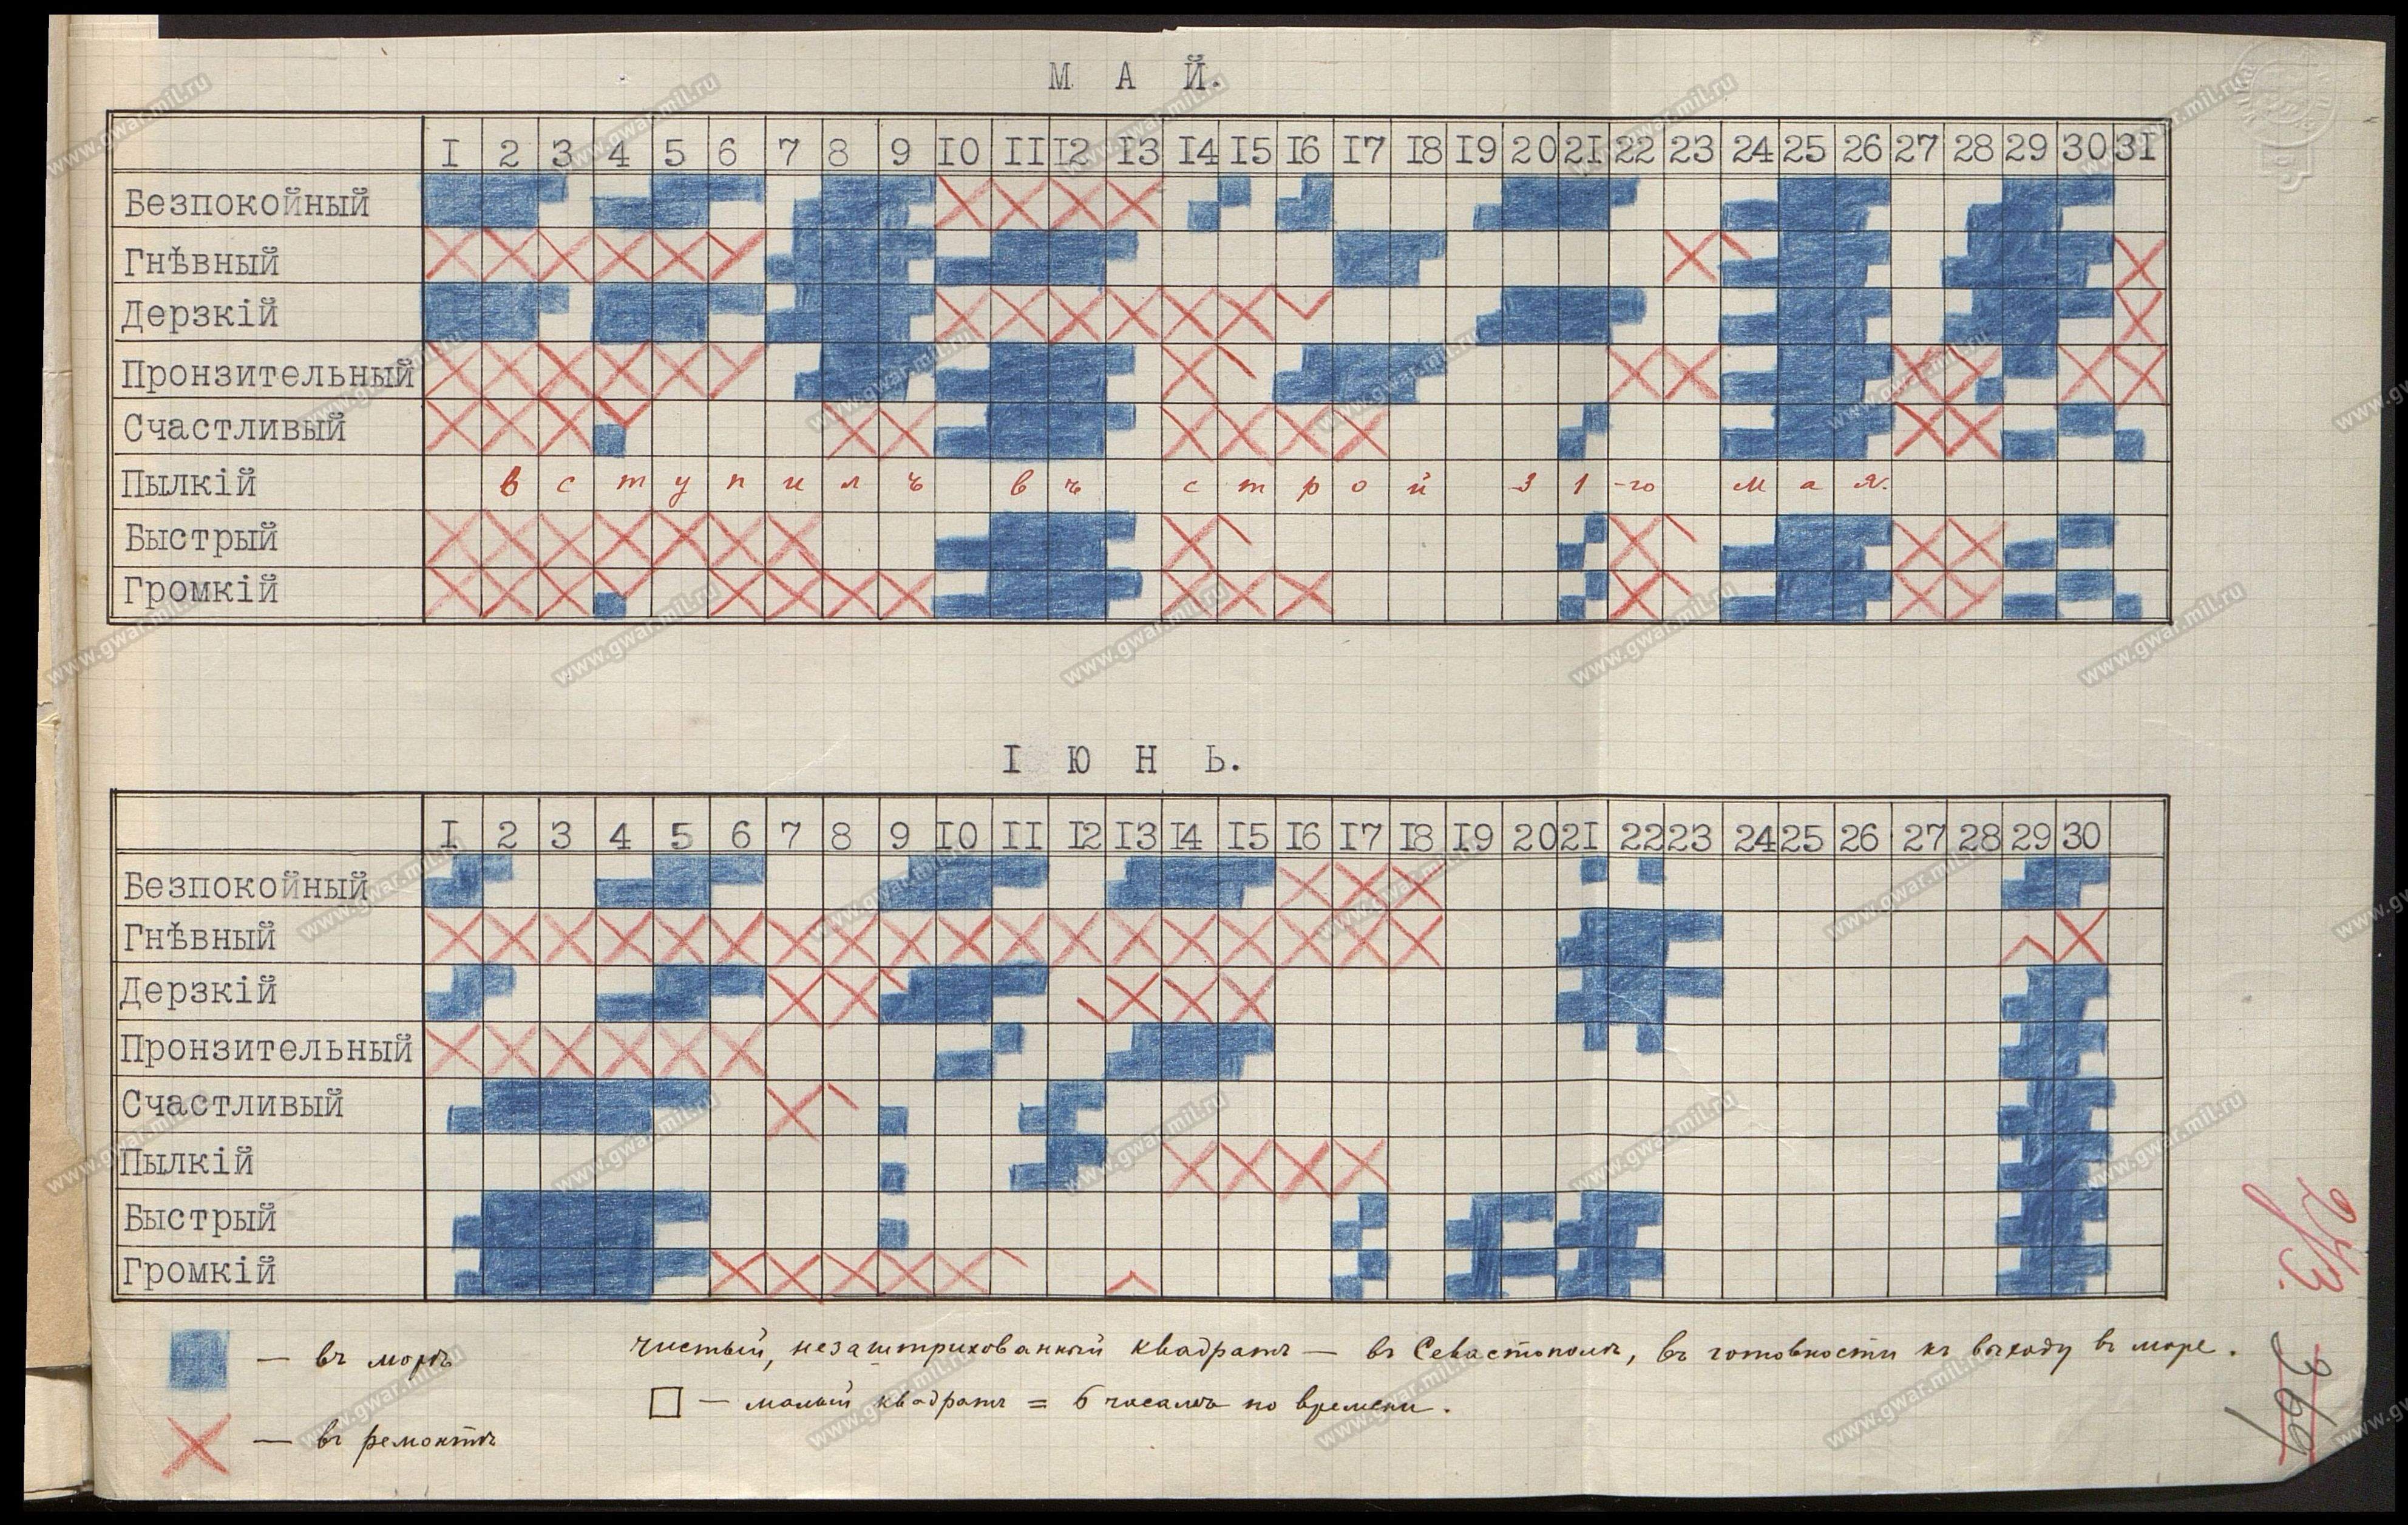 М А Й.
1 2 3 4 5 6 7 8 9 10 11 12 13 14 15 16 17 18 19 20 21 22 23 24 25 26 27 28 29 30 31
Безпокойный
Гнѣвный
Дерзкій
Пронзительный
Счастливый
Пылкій вступилъ въ строй 31-го мая.
Быстрый
Громкій
І Ю Н Ь.
1 2 3 4 5 6 7 8 9 10 11 12 13 14 15 16 17 18 19 20 21 22 23 24 25 26 27 28 29 30
Безпокойный
Гнѣвный
Дерзкій
Пронзительный
Счастливый
Пылкій
Быстрый
Громкій
— въ морѣ
Чистый, незаштрихованный квадратъ — въ Севастополѣ, въ готовности къ выходу въ море.
— малый квадратъ = 6 часамъ по времени.
— въ ремонтѣ
369
www.gwar.mil.ru